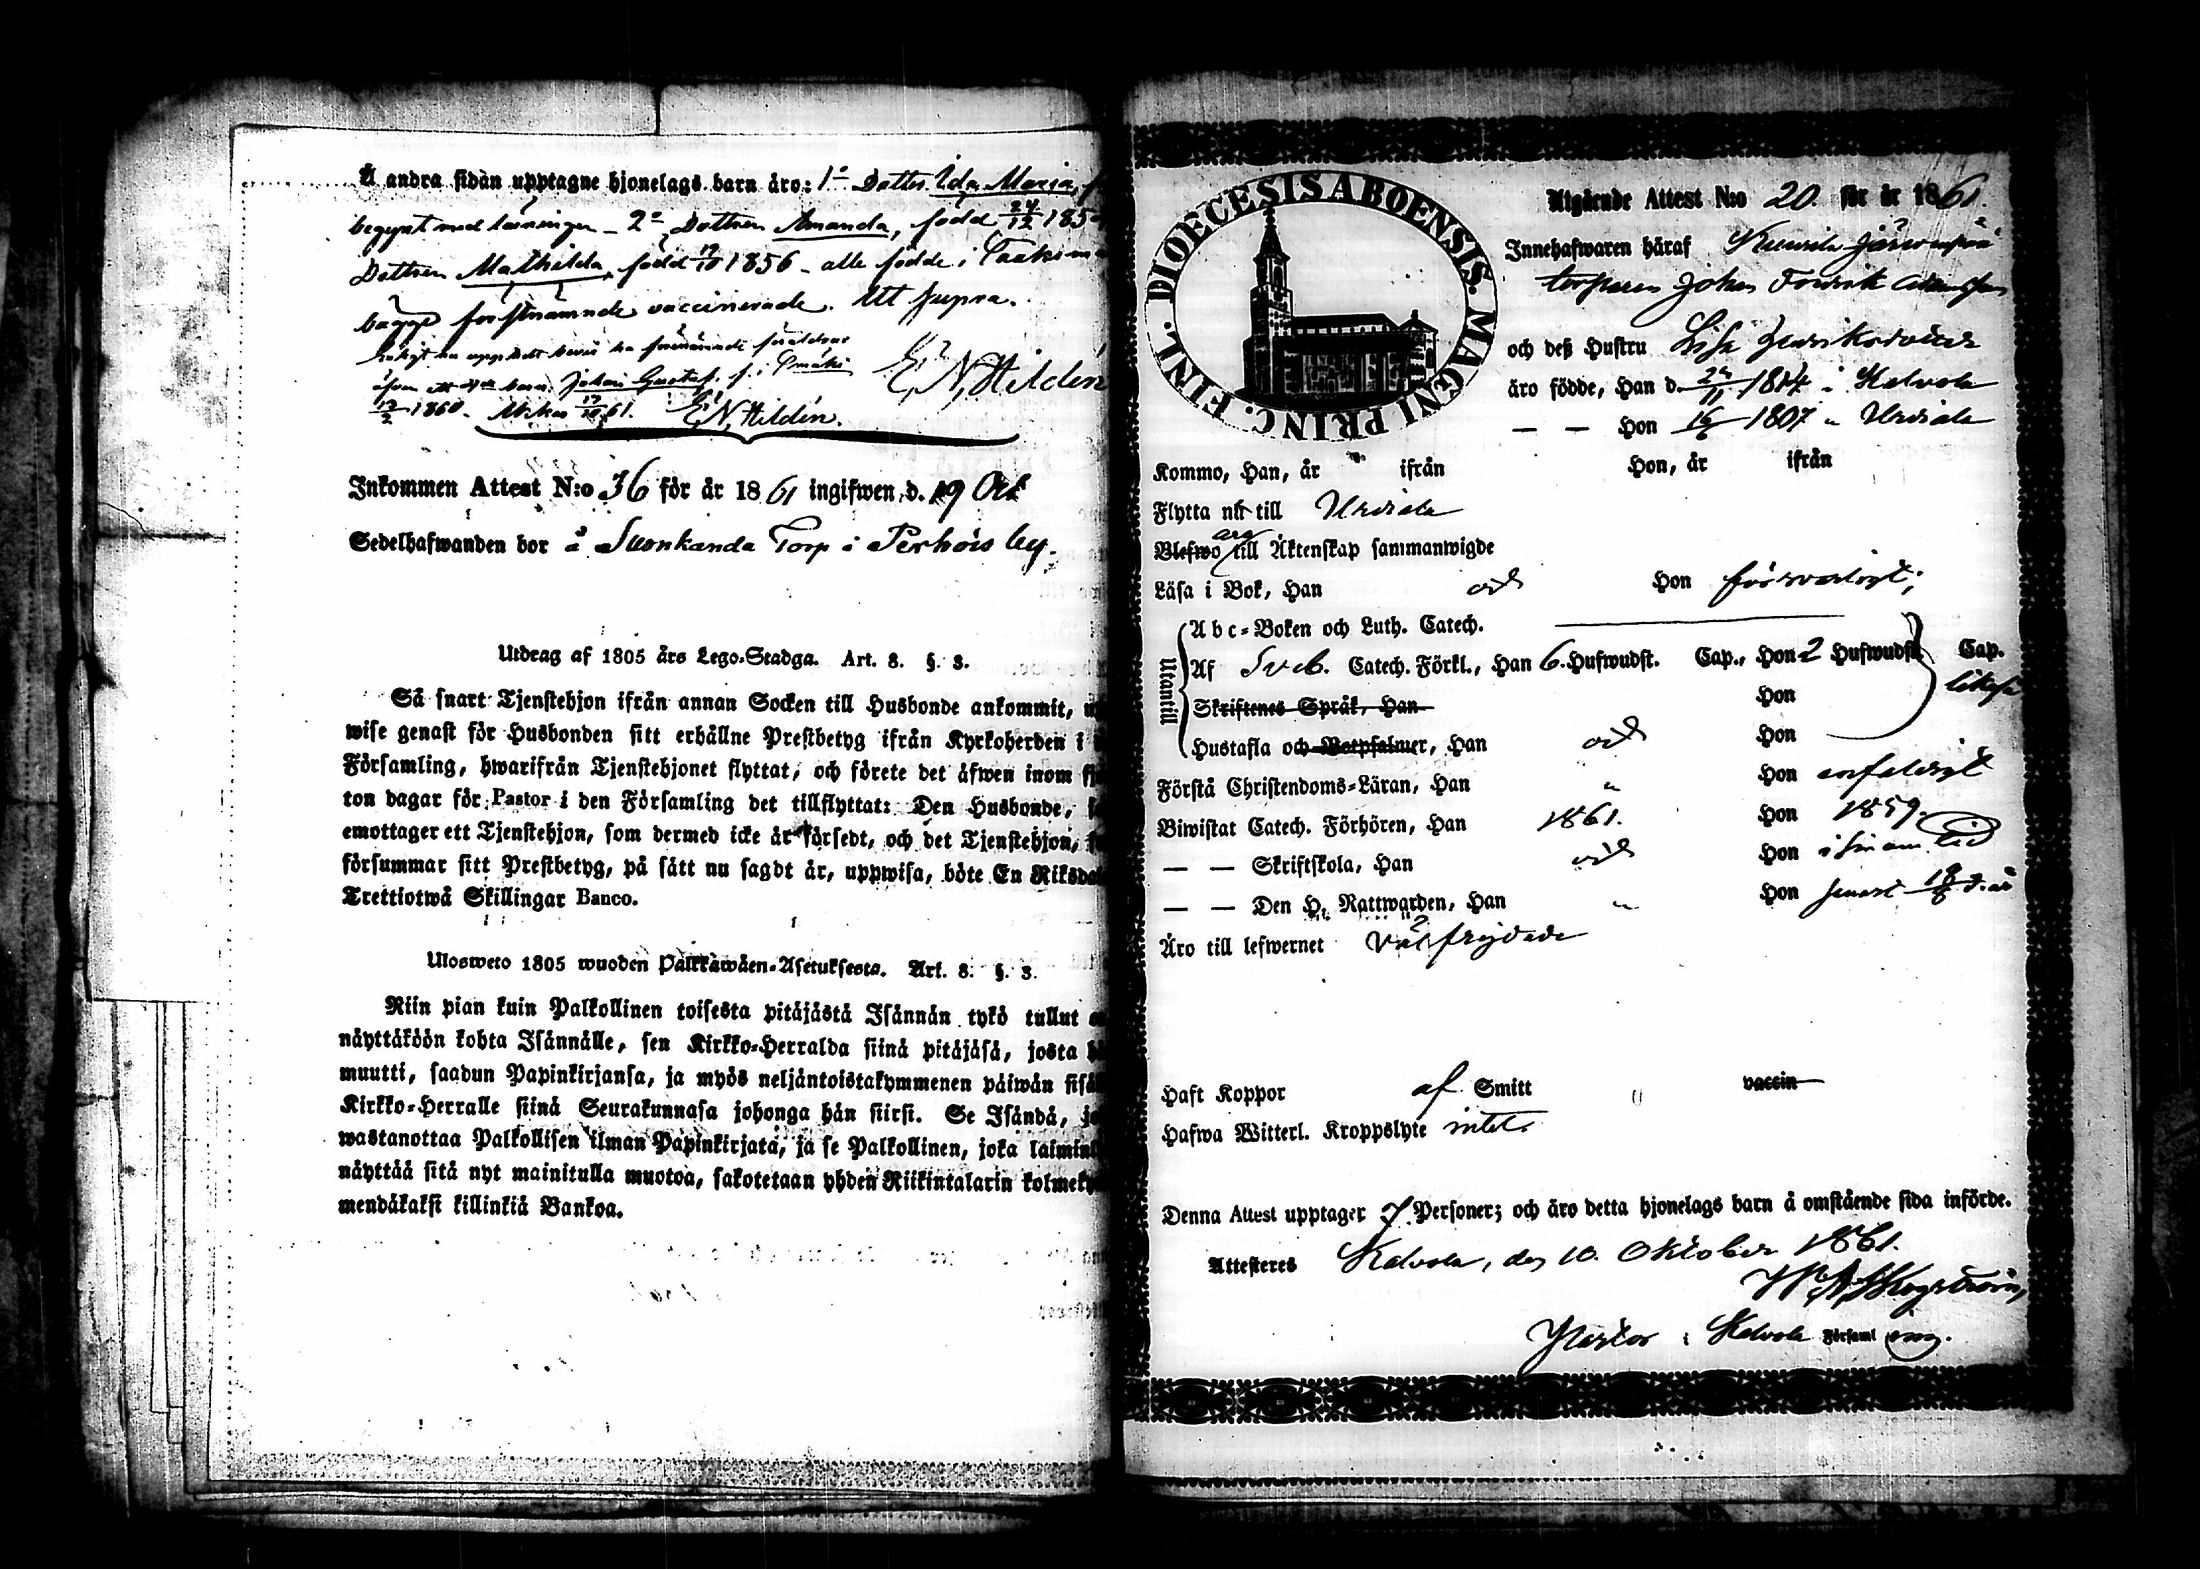 Å andra sidan upptagne hjonelags barn äro: 1o Dottr. Ida Maria, f
begynt med läsningen – 2o Dottren Amanda, född 24/12 185
Dottren Mathilda, född 17/10 1856 – alle födde i
förstnämnde vaccinerade. Ut supra.
E. N. Hildén
äfven ett 4de barn, Johan Gustaf, f. i
12/2 1860. 17/10 61. E. N. Hildén.
Inkommen Attest N:o 36 för år 1861 ingifwen d. 19 Oct
Sedelhafwanden bor å Suonkanda Torp i Perhois by.
Utdrag af 1805 års Lego-Stadga. Art. 8. §. 3.
Så snart Tjenstehjon ifrån annan Socken till Husbonde ankommit,
wise genast för Husbonden sitt erhållne Prestbetyg ifrån Kyrkoherden i
Församling, hwarifrån Tjenstehjonet flyttat, och förete det äfwen inom
ton dagar för Pastor i den Församling det tillflyttat: Den Husbonde,
emottager ett Tjenstehjon, som dermed icke är försedt, och det Tjenstehjon,
försummar sitt Prestbetyg, på sätt nu sagdt är, uppwisa, böte En Riksda
Trettiotwå Skillingar Banco.
Ulosweto 1805 wuoden Palkkawäen-Asetuksesta. Art. 8. §. 3.
Niin pian kuin Palkollinen toisesta pitäjästä Isännän tykö tullut
näyttäköön kohta Isännälle, sen Kirkko-Herralda siinä pitäjäsä, josta
muutti, saadun Papinkirjansa, ja myös neljäntoistakymmenen päiwän sisä
Kirkko-Herralle siinä Seurakunnasa johonga hän siirsi. Se Isändä,
wastanottaa Palkollisen ilman Papinkirjata, ja se Palkollinen, joka laimin
näyttää sitä nyt mainitulla muotoa, sakotetaan yhden Riikintalarin kolmeky
mendäkaksi killinkiä Bankoa.
DIOECESIS ABOENSIS. MAGNI PRINC. FINL.
Utgående Attest N:o 20 för år 1861.
Innehafwaren häraf Kuurila Järvenpää
torparen Johan Fredrik
och deß Hustru Lisa Henriksdotter
äro födde, Han d. 1814 i Kalvola
— — Hon 16/6 1807 " Urdiala
Kommo, Han, år ifrån Hon, år ifrån
Flytta nu till Urdiala
Blefwo äro till Äktenskap sammanwigde
Läsa i Bok, Han och Hon försvarligt;
Utantill
Abc-Boken och Luth. Catech.
Af Sveb. Catech. Förkl., Han 6. Hufwudst. Cap., Hon 2 Hufwudst Cap.
Skriftenes Språk, Han Hon
Hustafla och Botpsalmer, Han och Hon
Förstå Christendoms-Läran, Han " Hon enfaldigt
Biwistat Catech. Förhören, Han 1861. Hon 1859.
— — Skriftskola, Han och Hon i sin tid
— — Den H. Nattwarden, Han " Hon senast
Äro till lefwernet Välfrejdade
Haft Koppor af Smitt vaccin
Hafwa Witterl. Kroppslyte intet.
Denna Attest upptager 7. Personer; och äro detta hjonelags barn å omstående sida införde.
Attesteres Kalvola, den 10. Oktober 1861.
Pastor i Kalvola Församl ing.